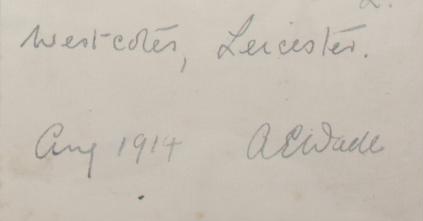 Westcotes, Leicester.
Aug 1914 A E Wade